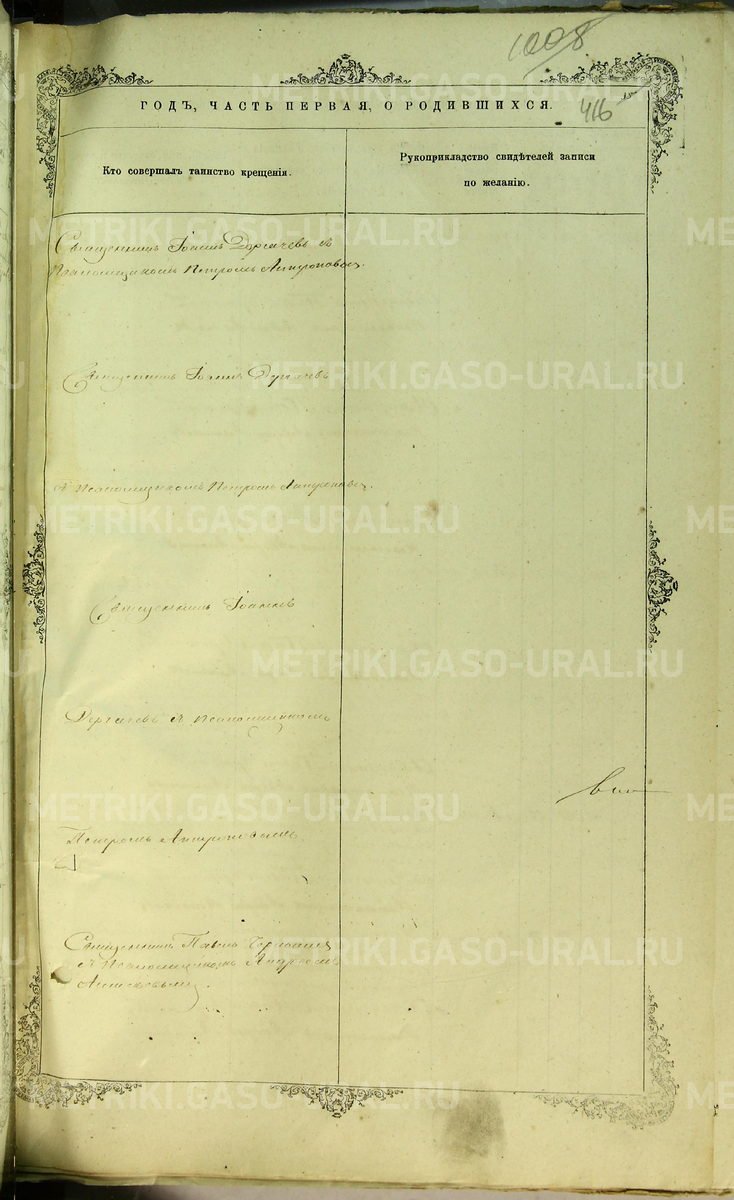 1008
416
ГОДЪ, ЧАСТЬ ПЕРВАЯ, О РОДИВШИХСЯ.
Кто совершалъ таинство крещенія.
Рукоприкладство свидѣтелей записи
по желанію.
Священникъ Іоаннъ Дергачевъ съ
Псаломщикомъ Петромъ Антроповымъ.
Священникъ Іоаннъ Дергачевъ
съ Псаломщикомъ Петромъ Антроповымъ.
Священникъ Іоаннъ
Дергачевъ съ Псаломщикомъ
Петромъ Антроповымъ.
Священникъ Павелъ
съ Псаломщикомъ Андреемъ
METRIKI.GASO-URAL.RU